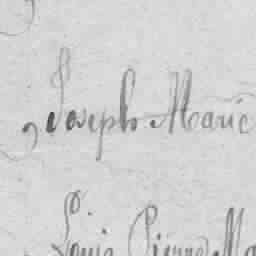 Joseph Marie
Louis Pierre Ma